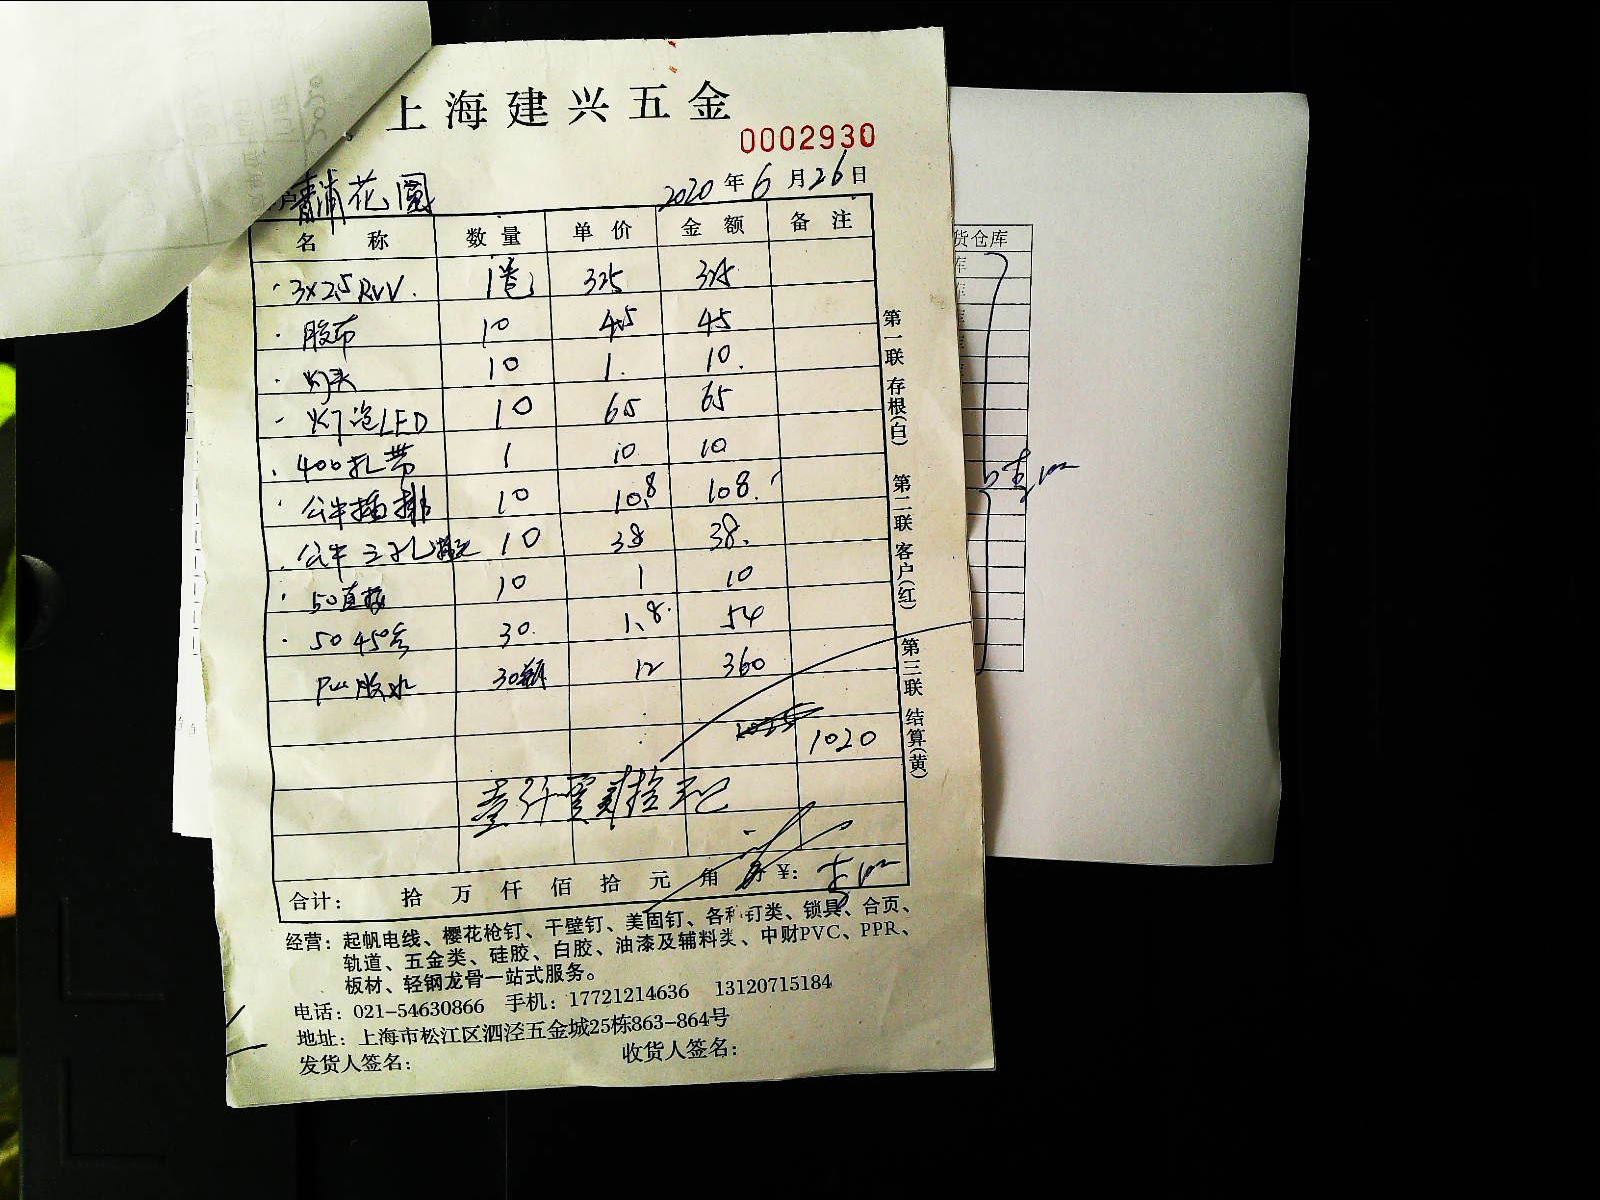 上海建兴五金
0002930
青浦花園
2020年6月26日
名 称 数量 单价 金额 备注
3×2.5 RVV. 1卷 325 325
胶布 10 4.5 45
灯头 10 1. 10.
灯泡LED 10 6.5 65
400扎带 1 10 10
公牛插排 10 10.8 108.
公牛三孔插 10 3.8 38.
50直接 10 1 10
50 45°弯 30. 1.8 54
胶水 30瓶 12 360
1020
壹仟零贰拾元
合计： 拾 万 仟 佰 拾 元 角 分 ¥：
经营：起帆电线、樱花枪钉、干壁钉、美固钉、各种钉类、锁具、合页、
轨道、五金类、硅胶、白胶、油漆及辅料类、中财PVC、PPR、
板材、轻钢龙骨一站式服务。
电话：021-54630866 手机：17721214636 13120715184
地址：上海市松江区泗泾五金城25栋863-864号
发货人签名： 收货人签名：
第一联 存根(白) 第二联 客户(红) 第三联 结算(黄)
货仓库